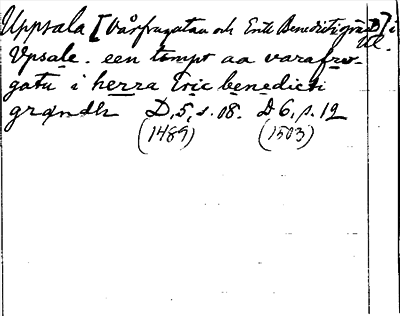 Uppsala [Vårfrugatan och Erik Benedicti gränd] i
Ul.
Vpsale. een tompt aa varafrv-
gatu i herra Eric benedicti
grændh D, 5, s. 08. D 6, s. 12
(1489) (1503)